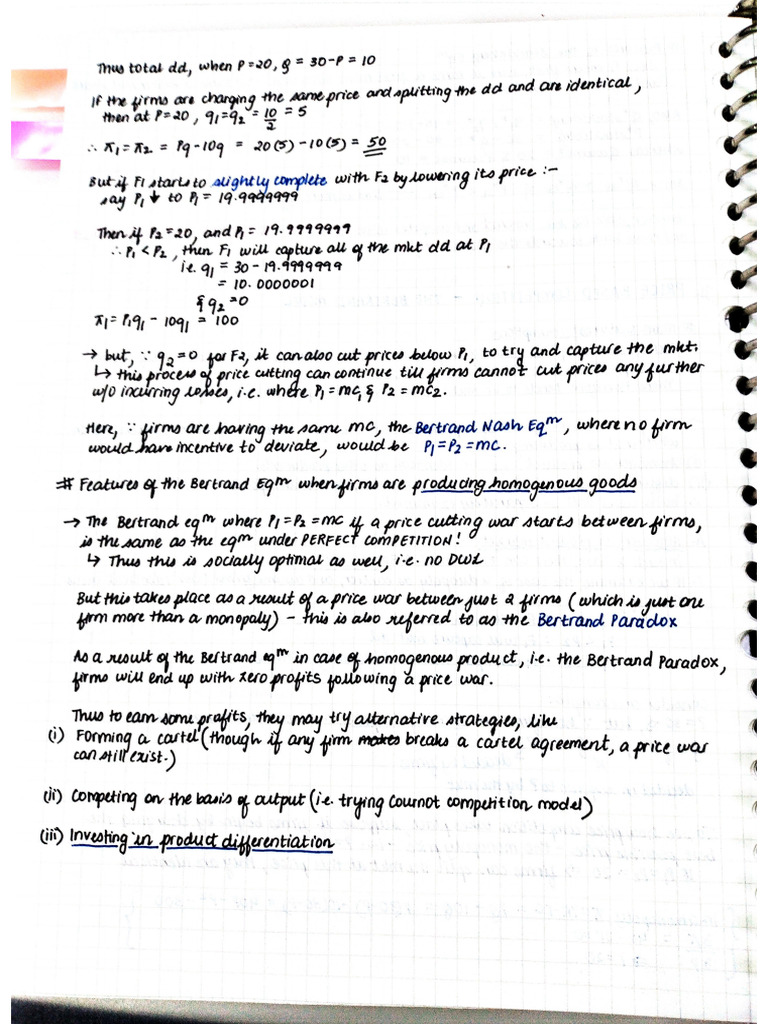 Thus total dd, when P=20, Q = 30-P = 10
If the firms are charging the same price and splitting the dd and are identical,
then at P=20, q1=q2 = 10/2 = 5
∴ π1 = π2 = Pq - 10q = 20(5) - 10(5) = 50
But if F1 starts to slightly complete with F2 by lowering its price :-
say P1 ↓ to P1 = 19.9999999
Then if P2=20, and P1 = 19.9999999
∴ P1 < P2, then F1 will capture all of the mkt dd at P1
i.e. q1 = 30 - 19.9999999
= 10.0000001
& q2 = 0
π1 = P1q1 - 10q1 = 100
→ but, ∵ q2 = 0 for F2, it can also cut prices below P1, to try and capture the mkt.
↳ this process of price cutting can continue till firms cannot cut prices any further
w/o incurring losses, i.e. where P1 = mc1 & P2 = mc2.
Here, ∵ firms are having the same mc, the Bertrand Nash Eqm, where no firm
would have incentive to deviate, would be P1 = P2 = mc.
# Features of the Bertrand Eqm when firms are producing homogenous goods
→ The Bertrand eqm where P1 = P2 = mc if a price cutting war starts between firms,
is the same as the eqm under PERFECT COMPETITION!
↳ Thus this is socially optimal as well, i.e. no DWL
But this takes place as a result of a price war between just 2 firms (which is just one
firm more than a monopoly) - this is also referred to as the Bertrand Paradox
As a result of the Bertrand eqm in case of homogenous product, i.e. the Bertrand Paradox,
firms will end up with zero profits following a price war.
Thus to earn some profits, they may try alternative strategies, like
(i) Forming a cartel (though if any firm makes breaks a cartel agreement, a price war
can still exist.)
(ii) Competing on the basis of output (i.e. trying Cournot competition model)
(iii) Investing in product differentiation